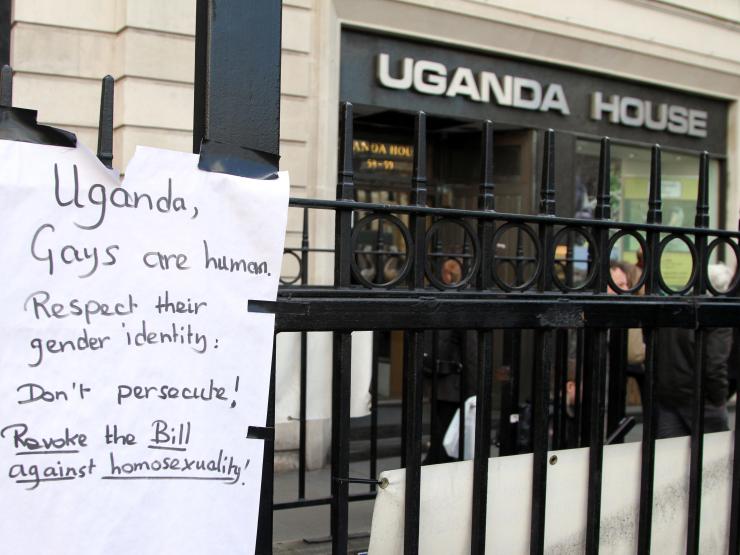 UGANDA HOUSE
UGANDA HOUSE
58-59
Uganda,
Gays are human.
Respect their
gender identity:
Don't persecute!
Revoke the Bill
against homosexuality!